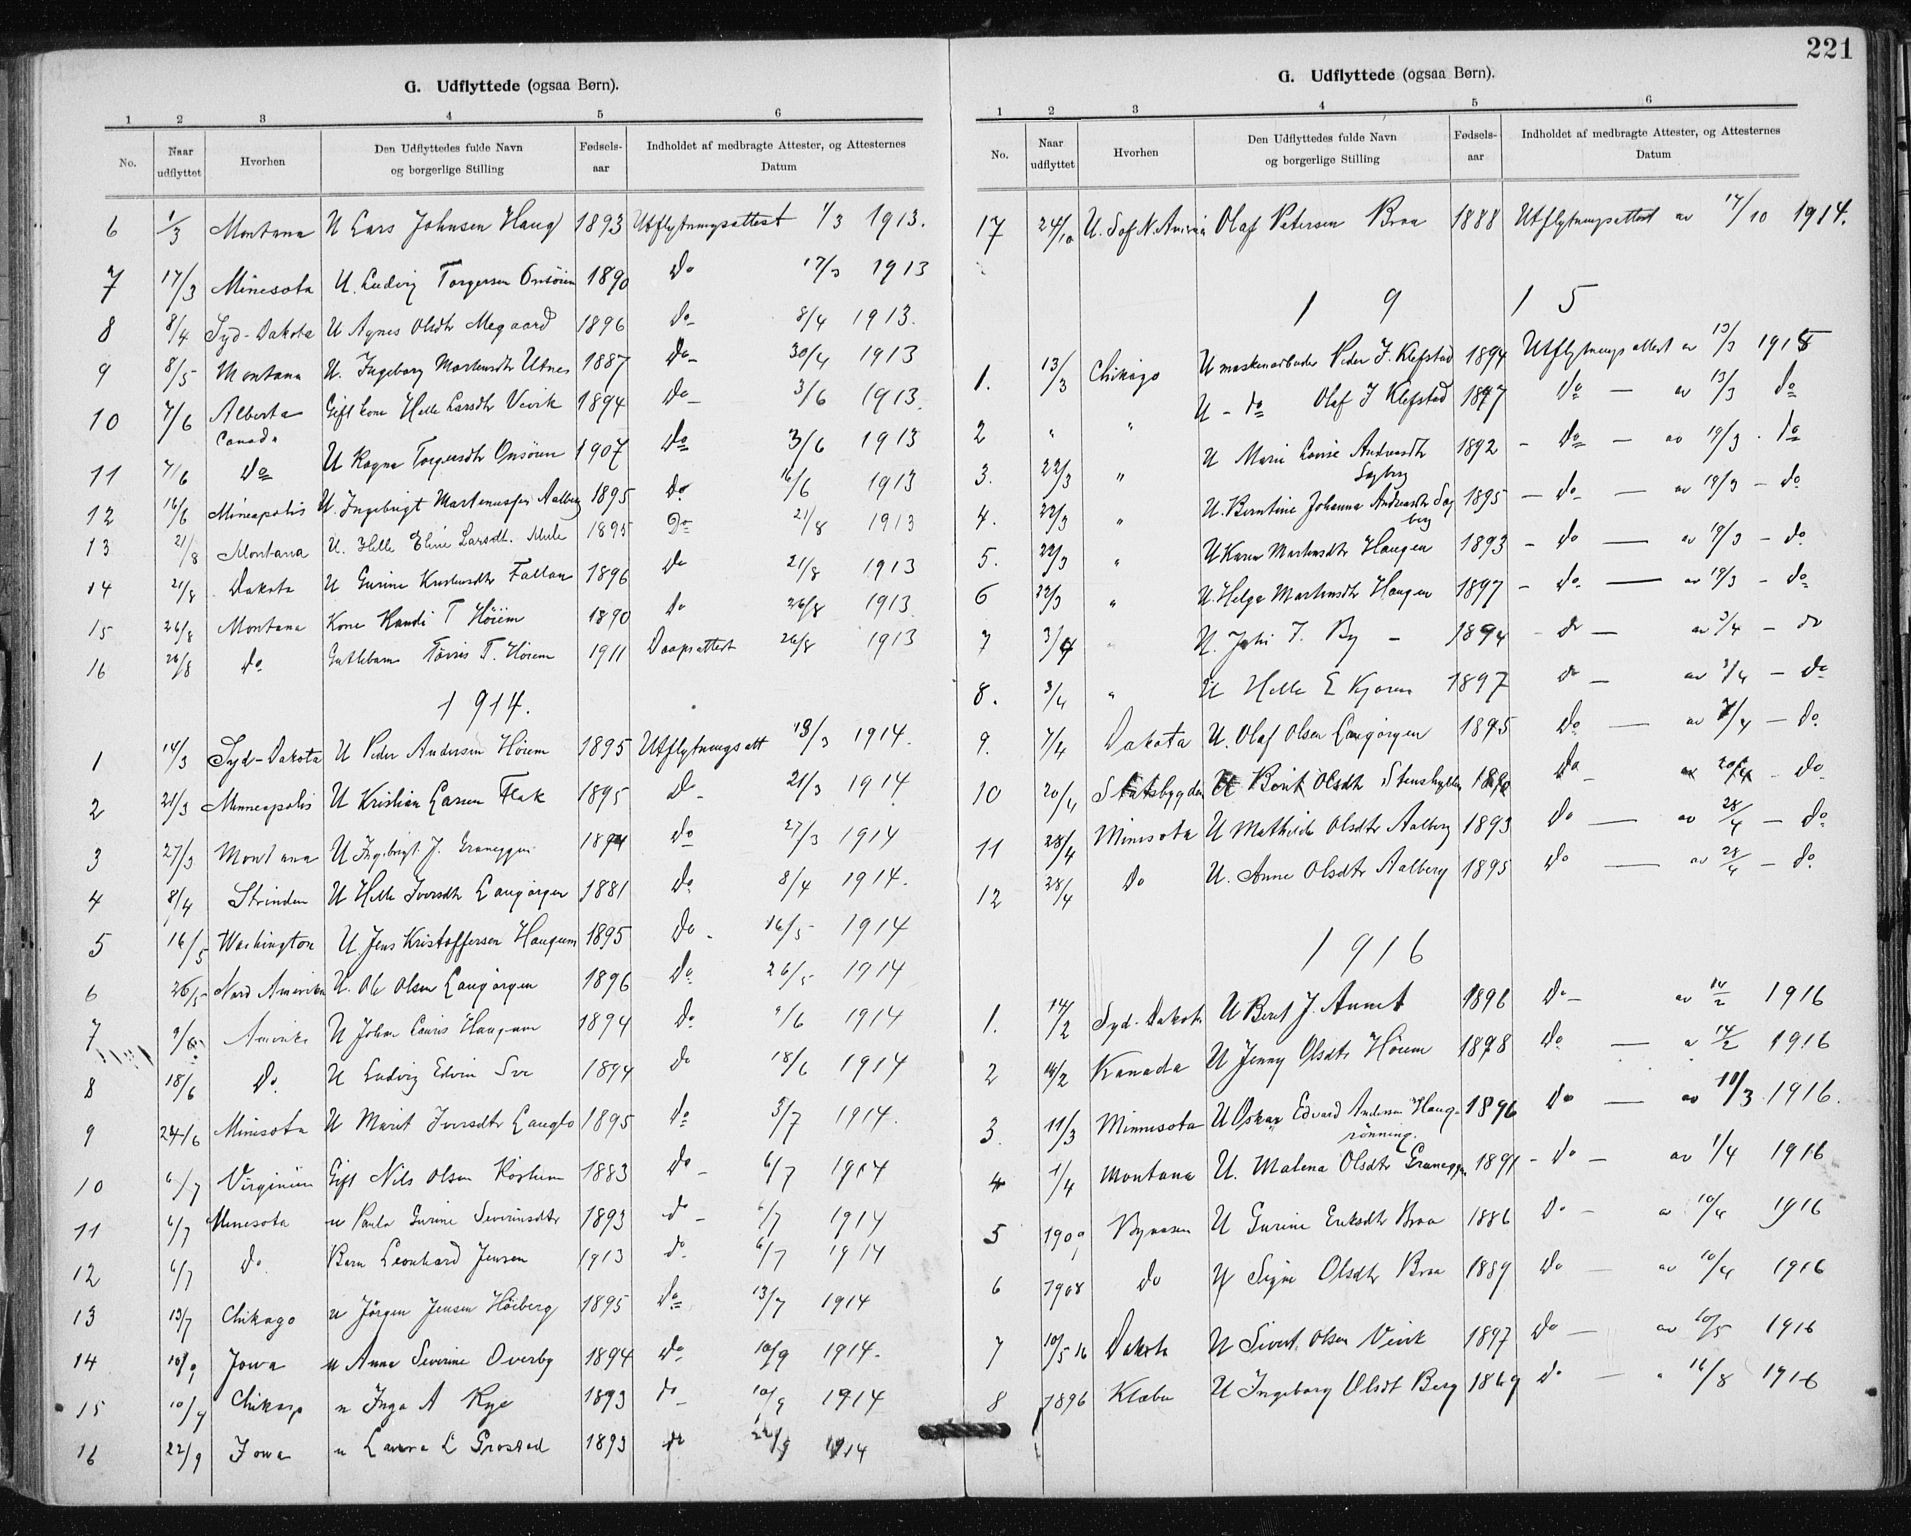 221
G. Udflyttede (ogsaa Børn).
1 2 3 4 5 6
No. Naar udflyttet Hvorhen Den Udflyttedes fulde Navn og borgerlige Stilling Fødsels-aar Indholdet af medbragte Attester, og Attesternes Datum
6 1/3 Montana U Lars Johnsen Haug 1893 Utflytningsattest 1/3 1913.
7 17/3 Minesota U. Ludvig Torgersen Onsöien 1890 Do 17/3 1913
8 8/4 Syd-Dakota U Agnes Olsdtr Megaard 1896 Do 8/4 1913.
9 8/5 Montana U. Ingeborg Martensdtr Utnes 1887 Do 30/4 1913
10 7/6 Alberta Gift kone Helle Larsdtr Veivik 1894 Do 3/6 1913.
Canada
11 7/6 Do U Ragna Torgersdtr Onsöien 1907 Do 3/6 1913
12 16/6 Mineapolis U. Ingebrigt Martenussen Aalberg 1895 Do 16/6 1913
13 21/8 Montana U. Helle Eline Larsdt. Mule 1895 Do 21/8 1913
14 21/8 Dakota U Gurine 1896 Do 21/8 1913
15 26/8 Montana Kone Randi T Höiem 1890 do 26/8 1913.
16 26/8 Do Guttebarn T. Höiem 1911 Daapsattest 26/8 1913
1914.
1 14/3 Syd-Dakota U Peder Andersen Höiem 1895 Utflytningsatt 13/3 1914.
2 21/3 Minneapolis U Kristian Larsen Flak 1895 Do 21/3 1914.
3 27/3 Montana U Ingebrigt J. Graneggen 1894 Do 27/3 1914
4 8/4 Strinden U Helle Iversdtr Langörgen 1881 Do 8/4 1914.
5 16/5 Washington U Jens Kristoffersen Haugum 1895 Do 16/5 1914
6 26/5 Nord Amerika U. Ole Olsen Langörgen 1896 Do 26/5 1914
7 9/6 Amerika U Johan Lauris Haugum 1894 Do 9/6 1914
8 18/6 Do. U Ludvig Edvin Sve 1894 do 18/6 1914
9 24/6 Minesota U Marit Iversdtr Langlo 1895 do 3/7 1914.
10 6/7 Virginien Gift Nils Olsen 1883 Do 6/7 1914
11 6/7 Minesota u Paula Gurine Severinsdtr 1893 do 6/7 1914
12 6/7 Do. Barn Leonhard Jensen 1913 do. 6/7 1914
13 13/7 Chikago u Jörgen Jensen Höiberg 1895 Do 13/7 1914
14 10/9 Jowa u Anna Severine Overby 1894 Do 10/9 1914.
15 10/9 Chikago u Inga A Rye 1893 do 10/9 1914
16 22/9 Jowa u Laura L 1893 do 22/9 1914
G. Udflyttede (ogsaa Børn).
1 2 3 4 5 6
No. Naar udflyttet Hvorhen Den Udflyttedes fulde Navn og borgerlige Stilling Fødsels-aar Indholdet af medbragte Attester, og Attesternes Datum
17 24/10 U. S of N. Amerika Olaf Petersen Braa 1888 Utflytningsattest av 17/10 1914.
1915
1. 13/3 Chikago U maskinarbeider Peder J. Klefstad 1894 Utflytningsattest av 13/3 1915
2 " " U - do Olaf J Klefstad 1897 do - av 13/3 do
3. 22/3 " U Marie Lovise Andreasdtr 1892 - Do - av 19/3 - do
Sagberg
4. 22/3 " U. Berntine Johanna Andreasdtr Sag 1895 - do - av 19/3 - do
berg
5. 22/3 " U Karen Martensdtr Haugen 1893 - do - av 19/3 - do
6 22/3 " U. Helga Martensdtr Haugen 1897 - do - av 19/3 - do
7 3/4 " U. J. By - 1894 - do - av 3/4 - do
8. 3/4 " U Helle E Kjoren 1897 do - av 3/4 - do
9. 7/4 Dakota U. Olaf Olsen Langörgen 1895 do - av 7/4 - do
10 20/4 Statsbygden U Berit Olsdtr Do - av 20/4 - do
11 28/4 Minesota U Mathilde Olsdtr Aalberg 1893 do - av 28/4 - do
12 28/4 Do U. Anne Olsdtr Aalberg 1895 do - av 28/4 - do
1916
1. 14/2 Syd-Dakota U Beret J. 1896 Do - av 14/2 1916
2 14/2 Kanada U Jenny Olsdtr Höiem 1898 Do - a 14/2 1916
3. 11/3 Minnesota U Oskar Edvard Andersen Haug- 1896 Do - av 11/3 1916.
rönning.
4 1/4 Montana U. Malena Olsdtr Graneggen 1891 - do - av 1/4 1916
5 1900 Bynesen U Gurine Eriksdtr Braa 1886 Do - a 10/4 1916
6 1908 Do U Signe Olsdtr Braa 1889 Do - av 10/4 1916
7 10/5 16 Dakota U Sivert Olsen Veivik 1897 Do - av 10/5 1916
8 1896 Klæbu U Ingeborg Olsdt Berg 1869 do - " 16/8 1916